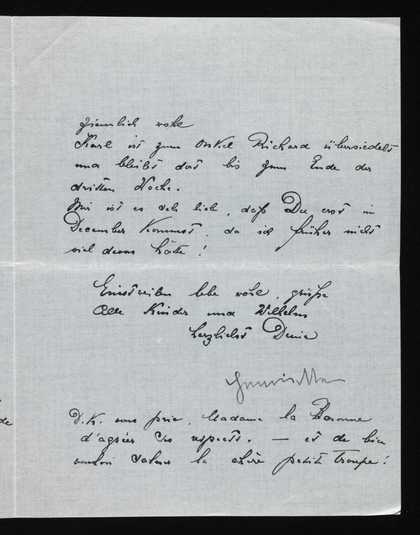 ziemlich wohl
Karl ist zum Onkel Richard übersiedelt
und bleibt dort bis zum Ende der
dritten Woche.
Mir ist es sehr lieb, daß Du erst im
December kommst, da ich früher nicht
viel davon hätte!
Einstweilen lebe wohl, grüße
Alle Kinder und Wilhelm
herzlichst Deine
D.K. vous prie, Madame la Baronne
d'agréer ses respects. — et de bien
vouloir saluer la chère petite troupe!
de